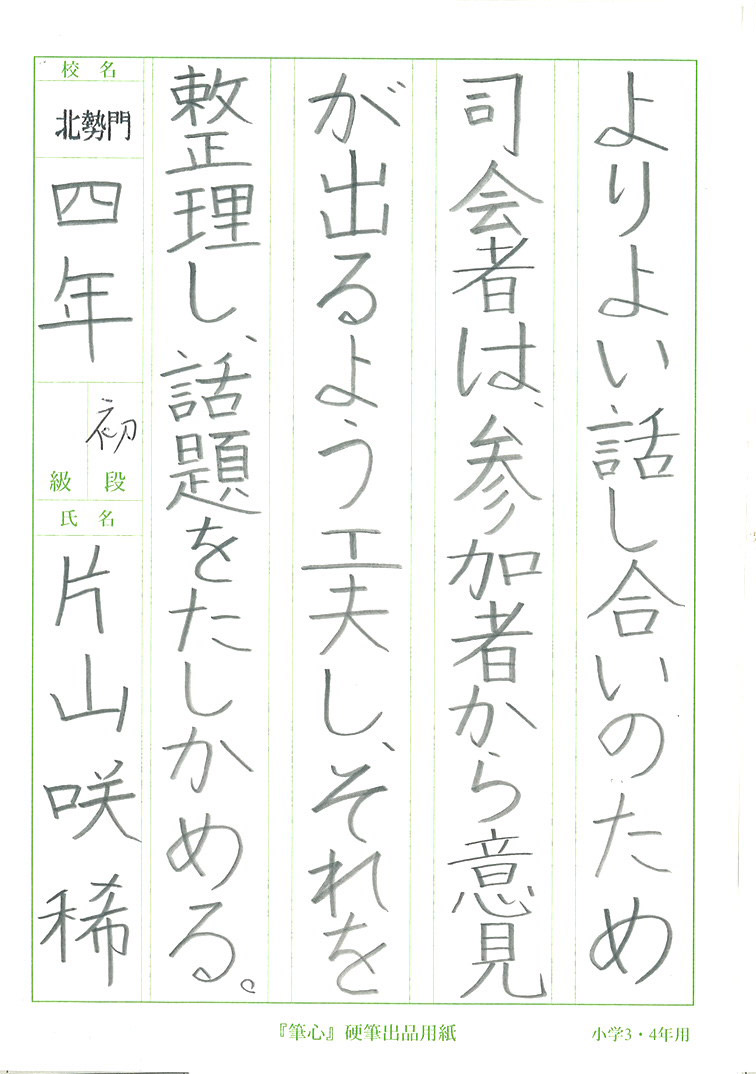 よりよい話し合いのため
司会者は、参加者から意見
が出るよう工夫し、それを
整理し、話題をたしかめる。
校名
北勢門
四年
初
級 段
氏名
片山咲稀
『筆心』硬筆出品用紙
小学3・4年用